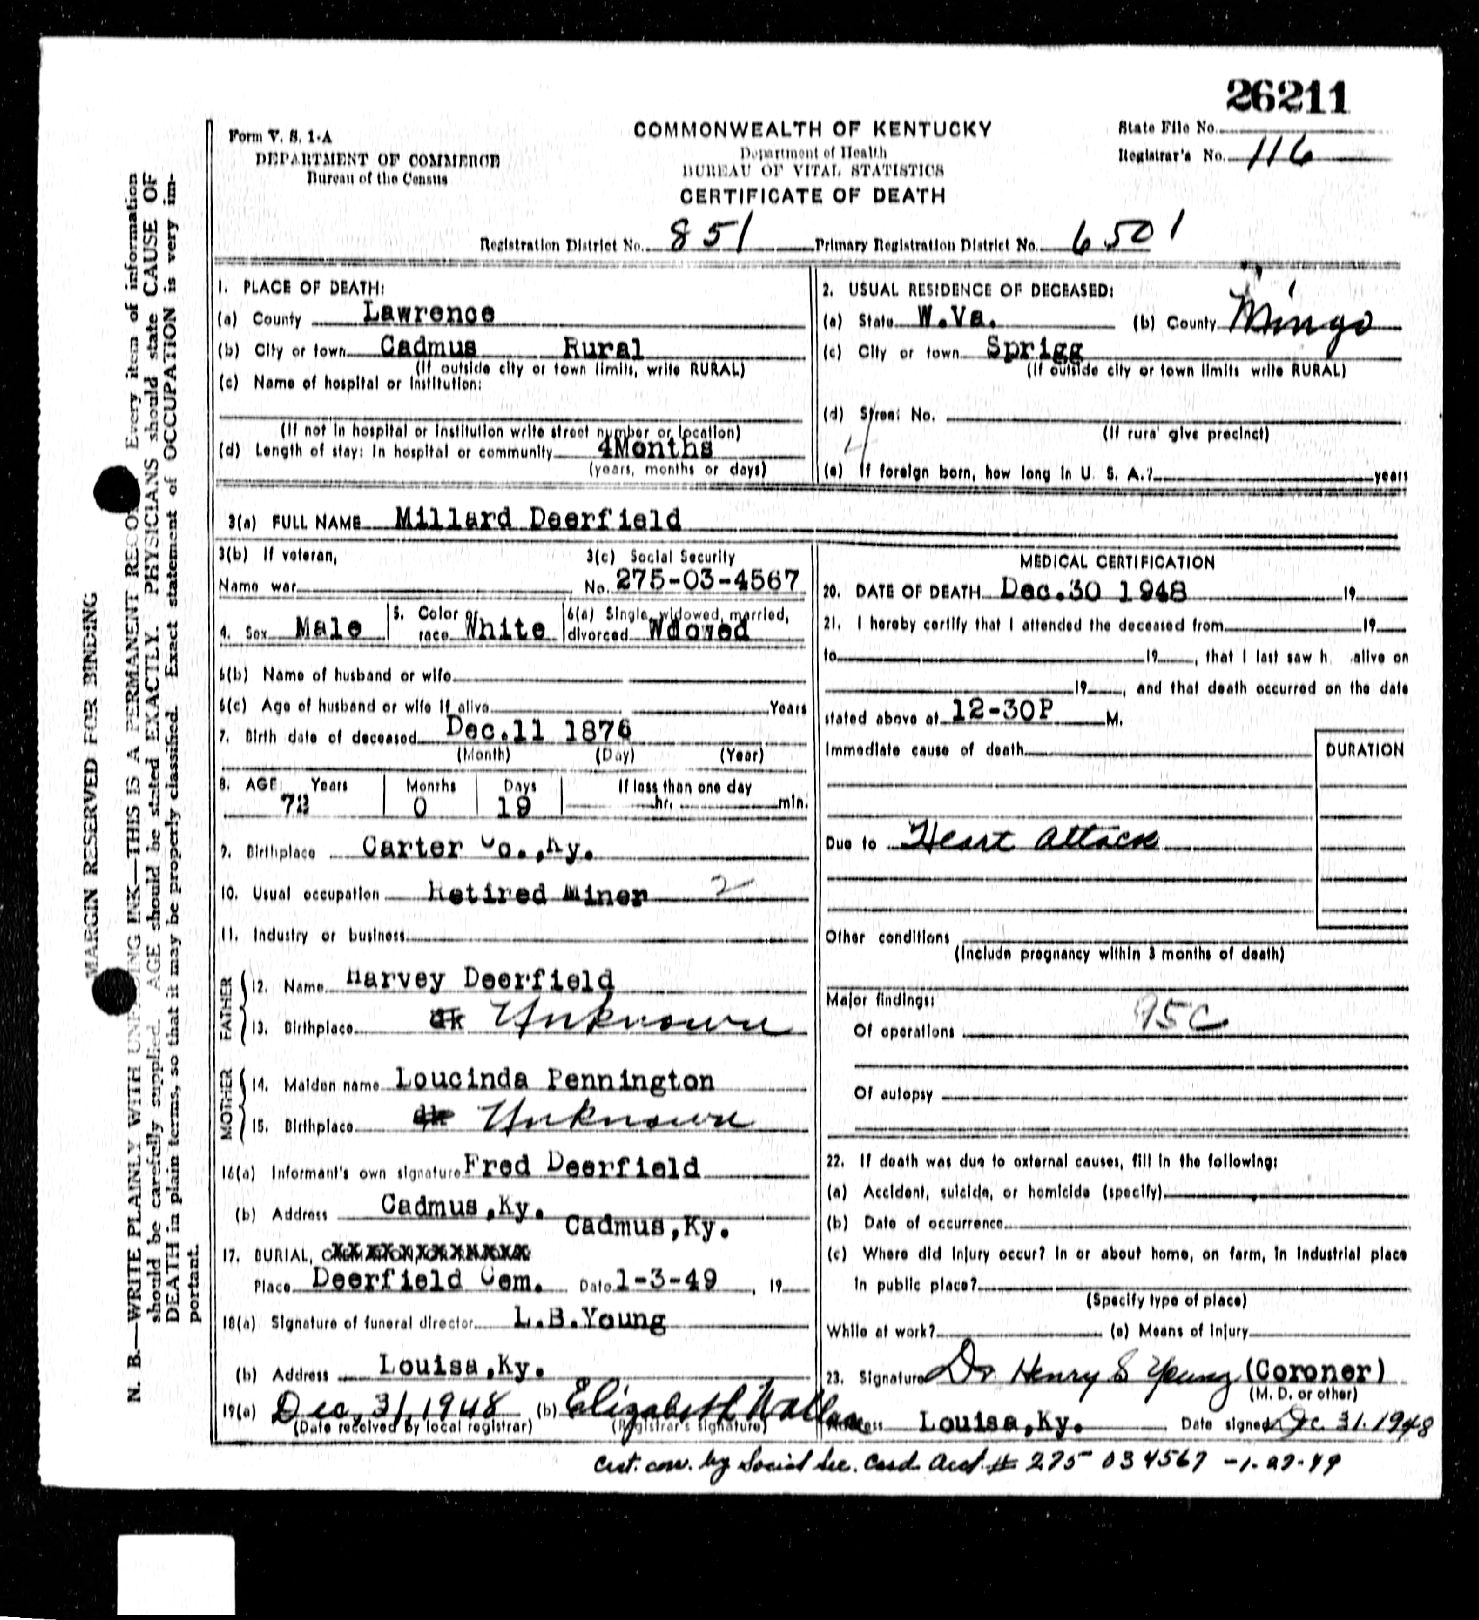 26211
Form V. S. 1-A
COMMONWEALTH OF KENTUCKY
State File No.
DEPARTMENT OF COMMERCE
Department of Health
Registrar's No. 116
Bureau of the Census
BUREAU OF VITAL STATISTICS
CERTIFICATE OF DEATH
Registration District No. 851 Primary Registration District No. 6501
1. PLACE OF DEATH:
(a) County Lawrence
(b) City or town Cadmus Rural
(If outside city or town limits, write RURAL)
(c) Name of hospital or institution:
(If not in hospital or institution write street number or location)
(d) Length of stay: In hospital or community 4Months
(years, months or days)
2. USUAL RESIDENCE OF DECEASED:
(a) State W.Va. (b) County Mingo
(c) City or town Sprigg
(If outside city or town limits write RURAL)
(d) Street No.
(If rural give precinct)
(e) If foreign born, how long in U. S. A.? years
3(a) FULL NAME Millard Deerfield
3(b) If veteran,
Name war
3(c) Social Security
No. 275-03-4567
4. Sex Male
5. Color or
race White
6(a) Single, widowed, married,
divorced Wdowed
6(b) Name of husband or wife
6(c) Age of husband or wife if alive Years
7. Birth date of deceased Dec.11 1876
(Month) (Day) (Year)
8. AGE Years Months Days If less than one day
72 0 19 hr. min.
9. Birthplace Carter Co.,Ky.
10. Usual occupation Retired Miner 2
11. Industry or business
FATHER
12. Name Harvey Deerfield
13. Birthplace Unknown
MOTHER
14. Maiden name Loucinda Pennington
15. Birthplace Unknown
16(a) Informant's own signature Fred Deerfield
(b) Address Cadmus,Ky.
Cadmus,Ky.
17. BURIAL,
Place Deerfield Cem. Date 1-3-49 , 19
18(a) Signature of funeral director L.B.Young
(b) Address Louisa,Ky.
19(a) Dec. 31, 1948 (b) Elizabeth
(Date received by local registrar) (Registrar's signature)
MEDICAL CERTIFICATION
20. DATE OF DEATH Dec.30 1948 19
21. I hereby certify that I attended the deceased from 19
to 19 , that I last saw h alive on
19 , and that death occurred on the date
stated above at 12-30P M.
Immediate cause of death
DURATION
Due to Heart attack
Other conditions
(Include pregnancy within 3 months of death)
Major findings:
95C
Of operations
Of autopsy
22. If death was due to external causes, fill in the following:
(a) Accident, suicide, or homicide (specify)
(b) Date of occurrence
(c) Where did injury occur? In or about home, on farm, in industrial place
in public place?
(Specify type of place)
While at work? (e) Means of injury
23. Signature Dr Henry S Young (Coroner)
(M. D. or other)
Address Louisa,Ky. Date signed Dec. 31. 1948
Cert. cor. by Social Sec. Card. Acct # 275 03 4567 -1-27-49
MARGIN RESERVED FOR BINDING
N. B.—WRITE PLAINLY WITH UNFADING INK—THIS IS A PERMANENT RECORD Every item of information
should be carefully supplied. AGE should be stated EXACTLY. PHYSICIANS should state CAUSE OF
DEATH in plain terms, so that it may be properly classified. Exact statement of OCCUPATION is very im-
portant.